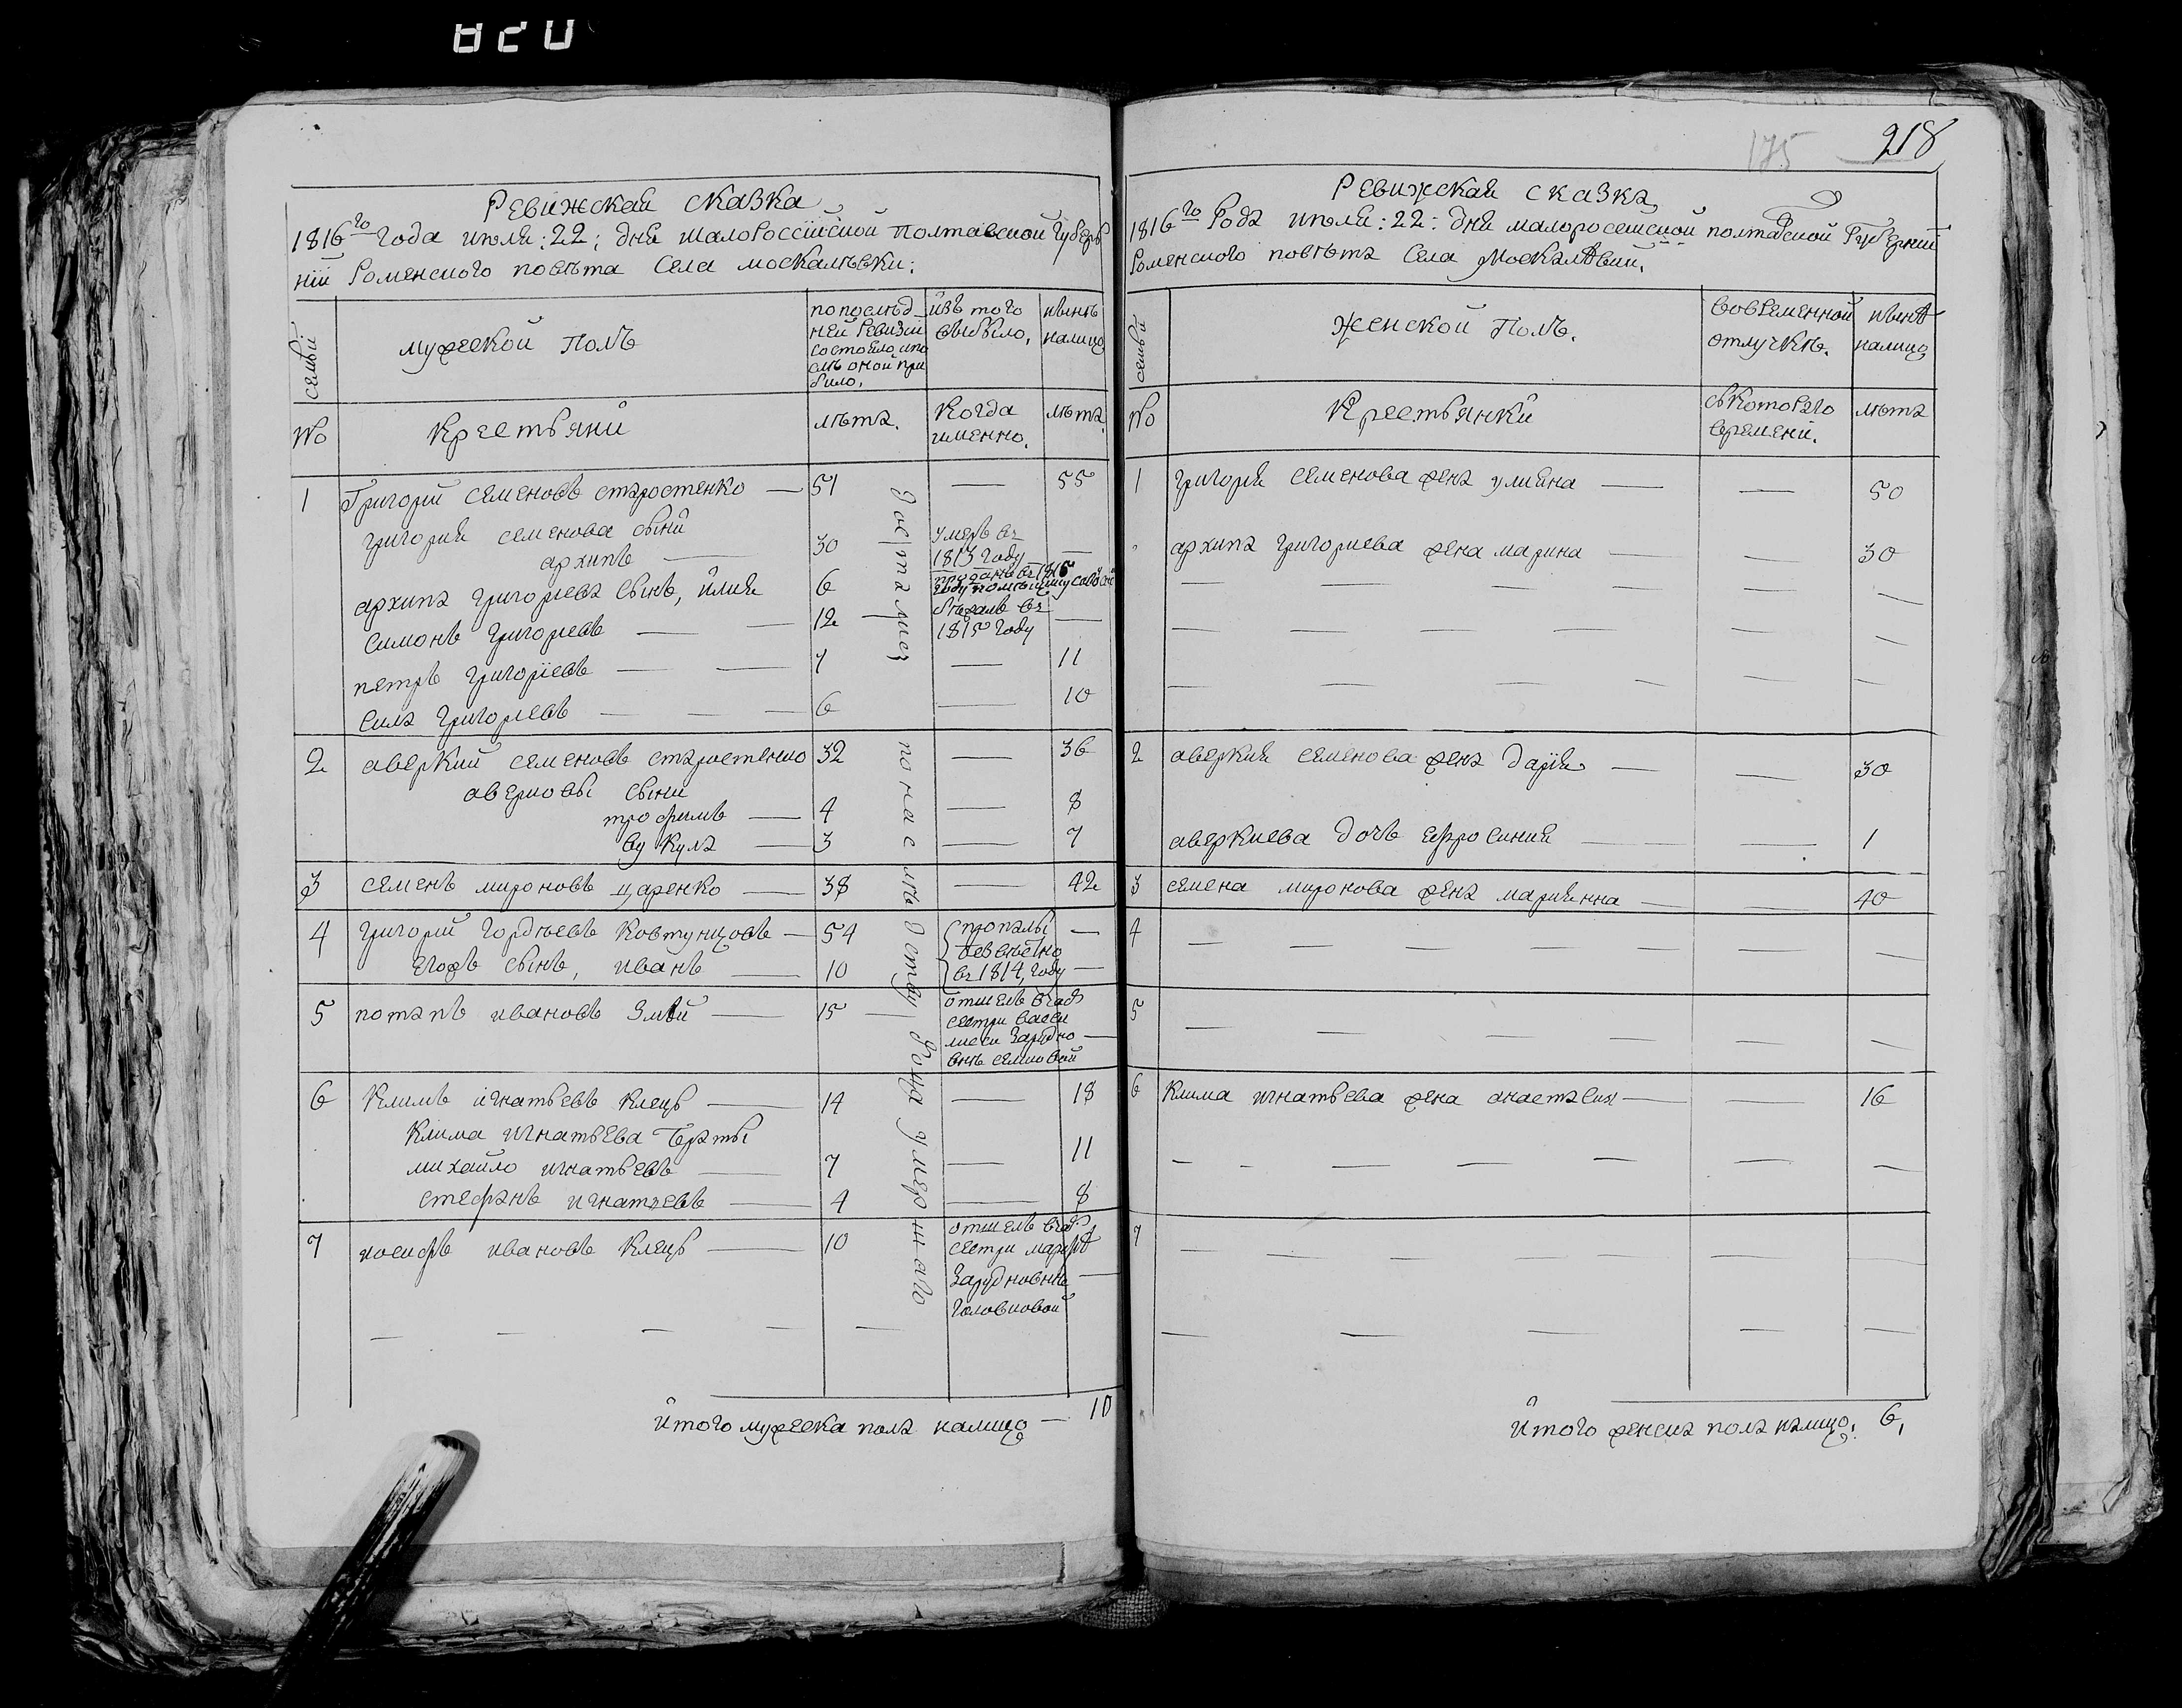 820
Ревижская сказка
1816го года июля: 22: дня малороссійской полтавской губерь
нии Роменского повѣта села москалѣвки:
семьи
мужеской полъ
по послѣд
ней ревизіи
состояло и по
слѣ оной при
било,
изъ того
выбыло,
нынѣ
налицо
No
Крестьяни
лѣта.
когда
именно.
лѣта
1 Григорій семеновъ старостенко — 51 — 55
григорія семенова сыни
архипъ — 30 умеръ въ 1813 году —
архипа григориева сынъ, илия 6 проданъ въ 1816 году помѣщику
симонъ григориевъ — 12 — бѣжалъ въ 1815 году —
петръ григоріевъ — 7 — 11
сила григориевъ — 6 — 10
2 аверкий семеновъ старостенко 32 — 36
аверковы сыни
трофимъ — 4 — 8
вукула — 3 — 7
3 семенъ мироновъ царенко — 38 — 42
4 григорий гордѣевъ ковтунцовъ — 54 пропалы —
егожъ сынъ, иванъ — 10 безвѣстно въ 1814, году —
5 потапъ ивановъ змѣй — 15 — отшелъ въ
сестри
зарудно
внѣ
6 климъ игнатьевъ клецъ — 14 — 18
клима игнатьева браты
михайло игнатьевъ — 7 — 11
стефанъ игнатьевъ — 4 — 8
7 иосифъ ивановъ клецъ — 10 отшелъ въ
сестри марфѣ
зарудновнѣ —
головковой
досталися по наследству роида умершаго
итого мужеска пола налицо — 10
175 218
Ревижская сказка,
1816го года июля: 22: дня малоросейской полтавской губерний
Роменского повѣта села москалѣвки,
семьи
женской полъ.
во временной
отлучкѣ.
нынѣ
налицо
No
Крестьянки
съ котораго
времени.
лѣта
1 григория семенова жена улияна — — 50
архипа григориева жена марина — — 30
2 аверкия семенова жена дарія — — 30
аверкиева дочъ ефросиния — — 1
3 семена миронова жена мариянна — — 40
4
5
6 клима игнатьева жена анастасия — — 16
7
итого женска пола налицо, 6,